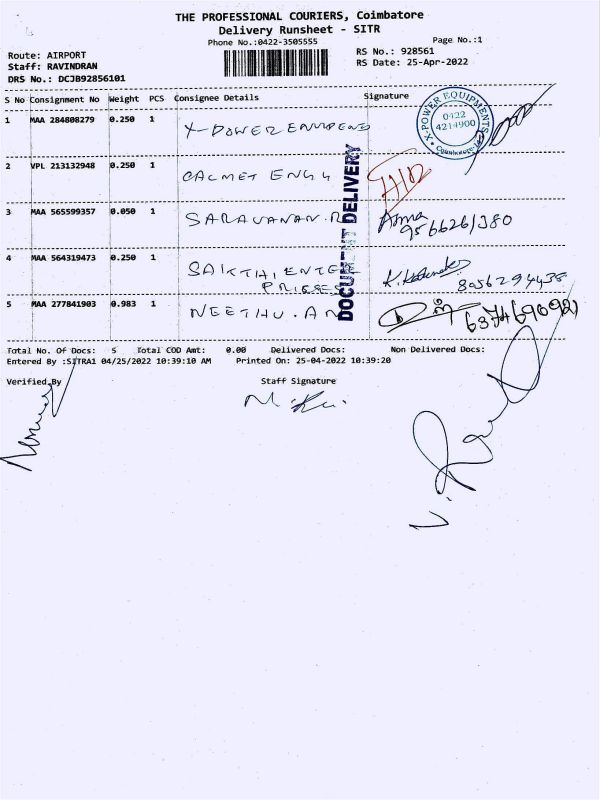 THE PROFESSIONAL COURIERS, Coimbatore
Delivery Runsheet - SITR
Phone No.:0422-3505555
Page No.:1
Route: AIRPORT
RS No.: 928561
Staff: RAVINDRAN
RS Date: 25-Apr-2022
DRS No.: DCJB92856101
S No Consignment No Weight PCS Consignee Details Signature
1 MAA 284808279 0.250 1 X-POWER EQUIPEND
X-POWER EQUIPMENTS
0422
4214900
Coimbatore
2 VPL 213132948 0.250 1 CALMET ENGG
3 MAA 565599357 0.050 1 SARAVANAN.R Asma
9566261380
4 MAA 564319473 0.250 1 SAKTHI ENTER
PRISES 8056294438
5 MAA 277841903 0.983 1 NEETHU.AN 6374690921
DOCUMENT DELIVERY
Total No. Of Docs: 5 Total COD Amt: 0.00 Delivered Docs: Non Delivered Docs:
Entered By :SITRA1 04/25/2022 10:39:10 AM Printed On: 25-04-2022 10:39:20
Verified By Staff Signature